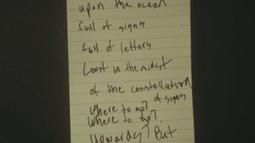 upon the ocean
full of signs
full of letters
Lost in the midst
of the constellation
of signs
where to go?
where to go?
Upwards? But